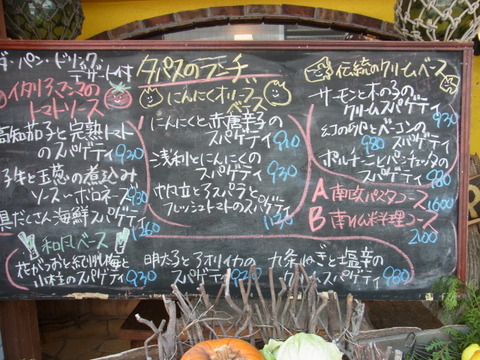 ダ・パン・ドリンク
デザート付
タパスのランチ
イタリア マンマの
トマトソース
高知茄子と完熟トマト
のスパゲティ 930
子牛と玉葱の煮込み
ソース ボロネーズ 930
具だくさん海鮮スパゲティ
1260
和風ベース
小柱のスパゲティ 930
にんにくオリーブ
ベース
にんにくと赤唐辛子の
スパゲティ 920
浅利とにんにくの
スパゲティ 930
帆立とアスパラと
フレッシュトマトのスパゲティ
明太子とアオリイカの
スパゲティ
伝統のクリームベース
サーモンと木の子の
クリームスパゲティ
980
ポルチーニとパンチェッタの
スパゲティ 980
A 南欧パスタコース
1600
B 南仏料理コース
2600
九条ねぎと塩辛の
クリームスパゲティ 980